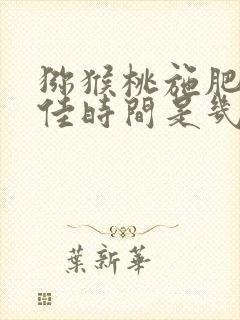 猕猴桃施肥
佳時間是幾
葉新華